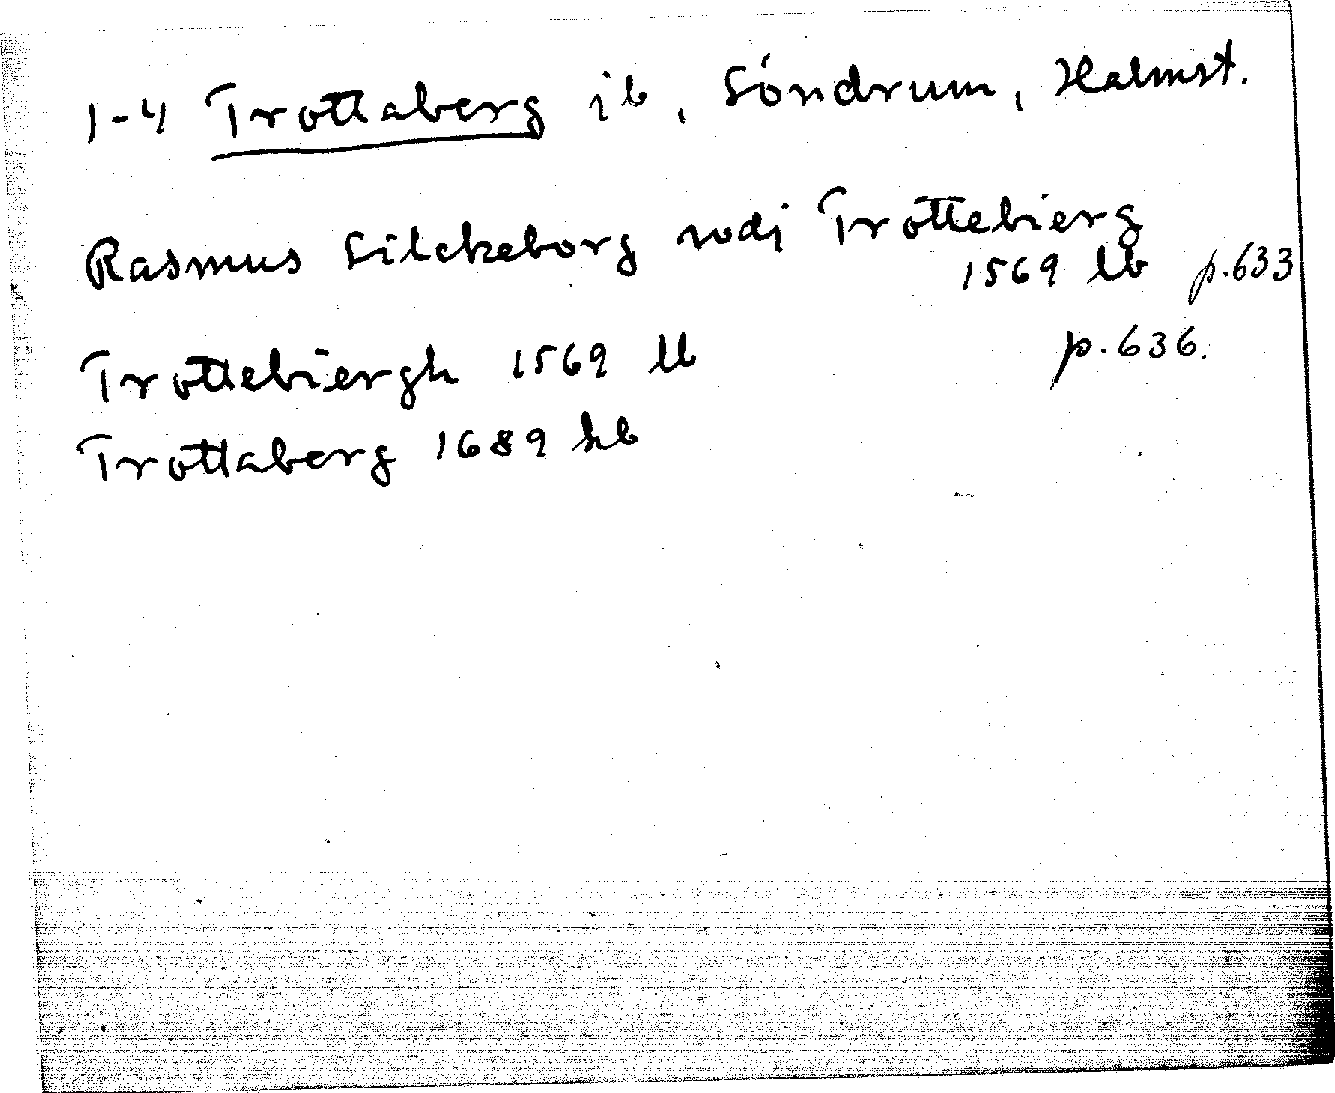 1-4 Trottaberg ib, Söndrum, Halmst.
Rasmus Silckeborg udj Trottebierg
1569 lb p.633
Trottebiergh 1569 lb p.636.
Trottaberg 1689 hb